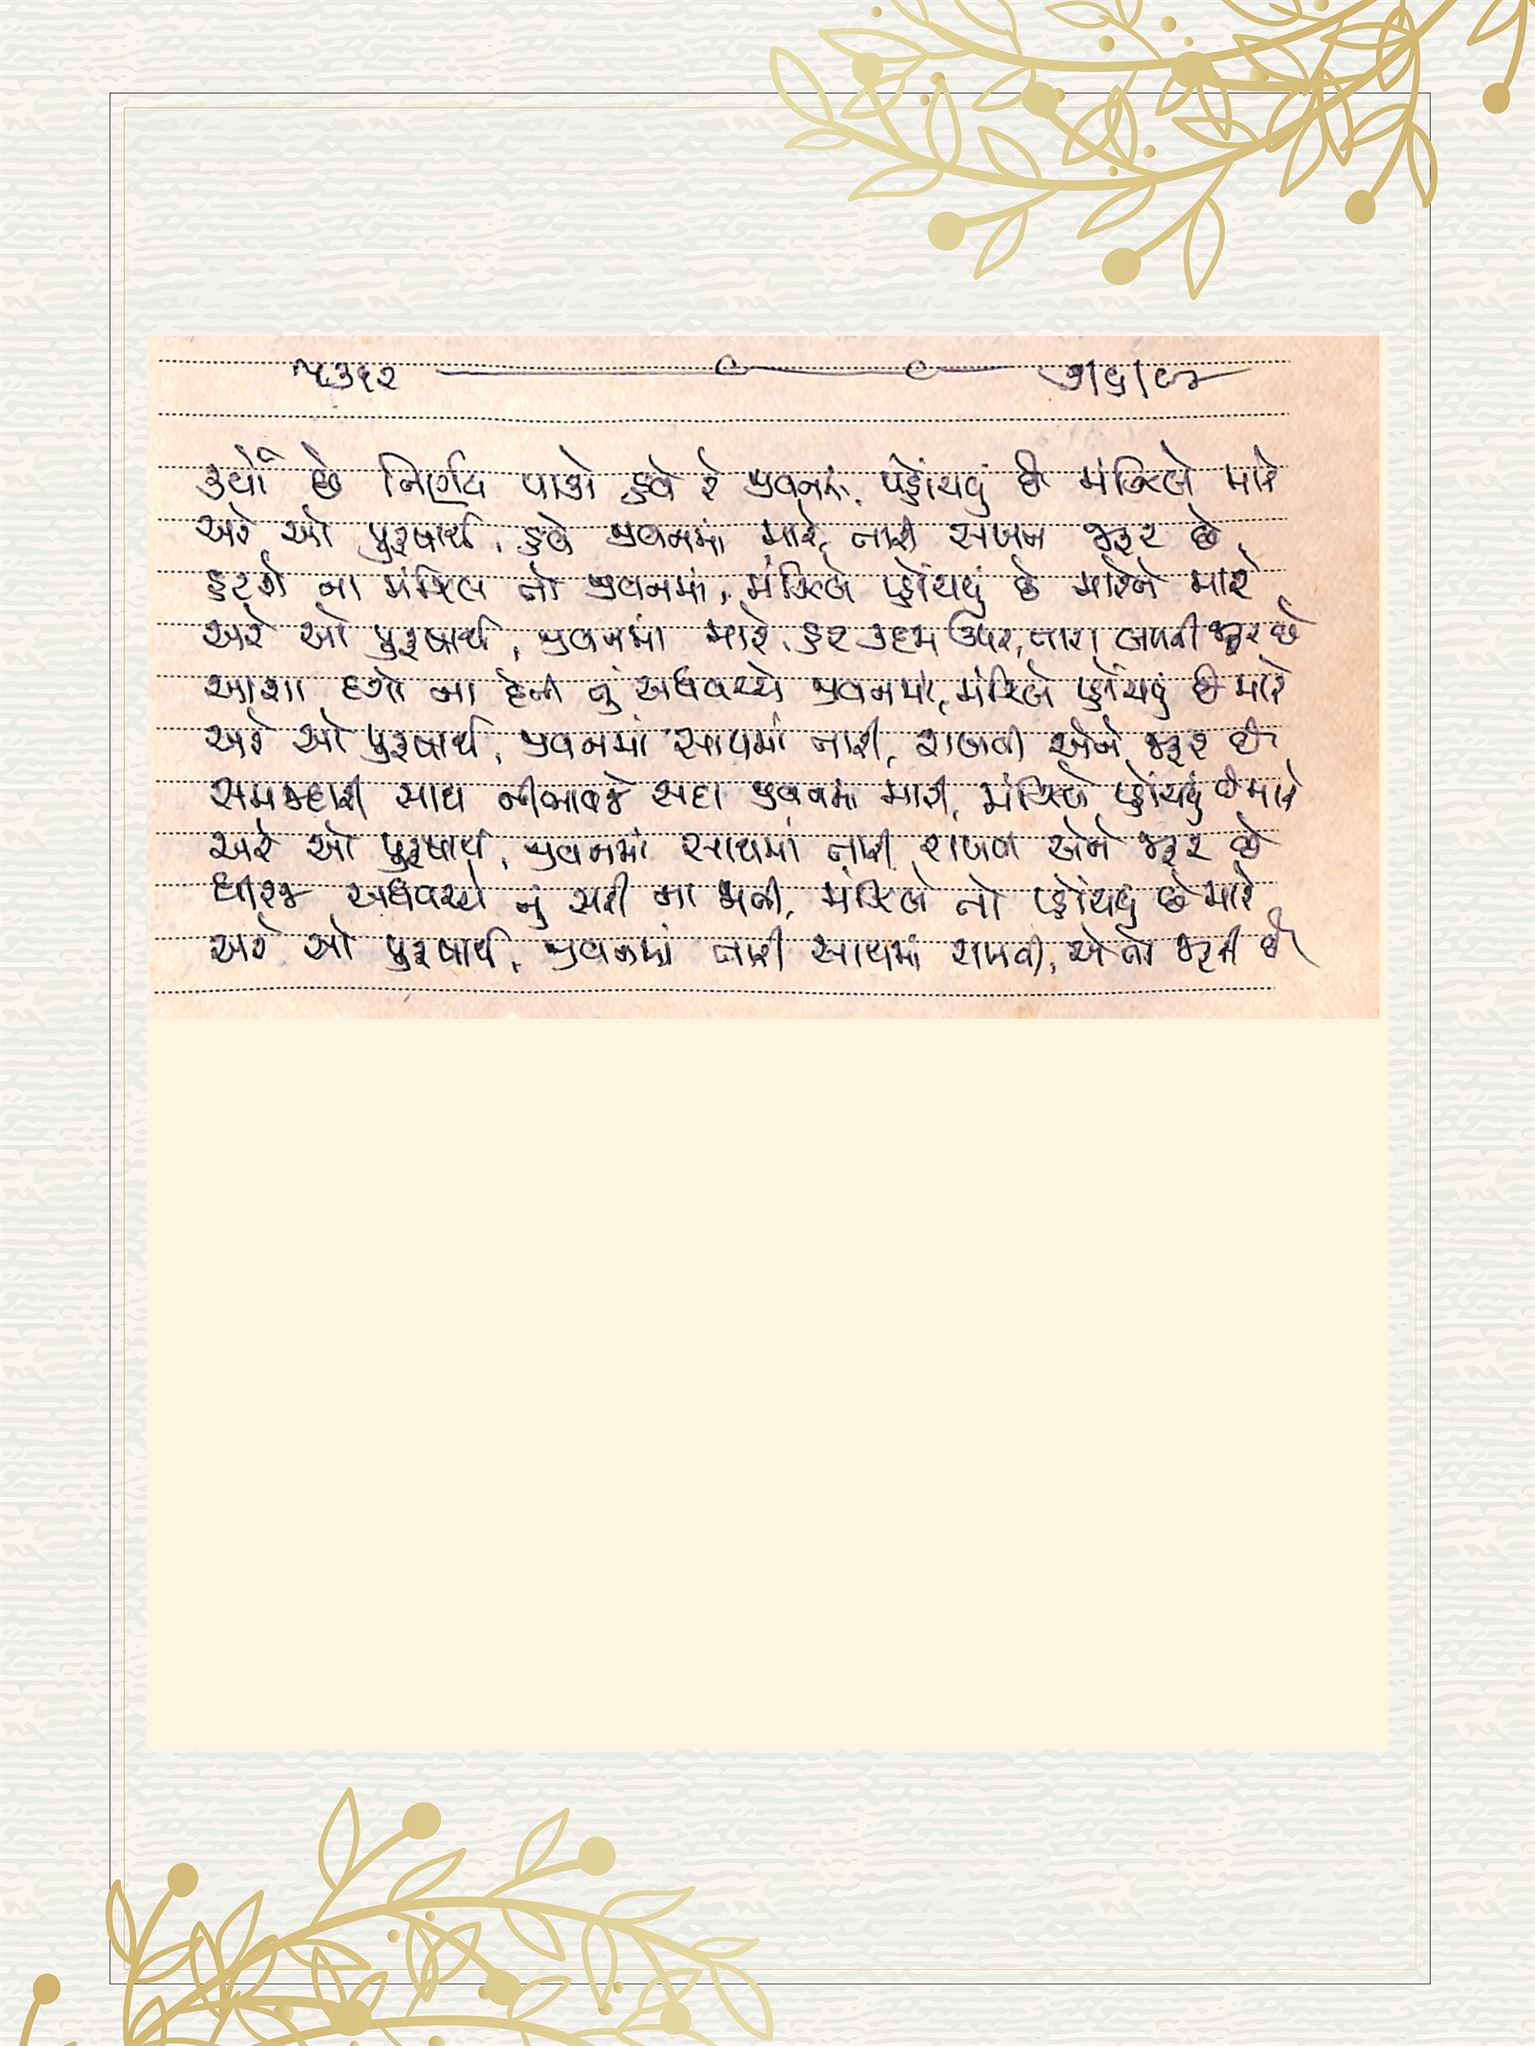 ૫૩૬૨ ૭|૬|૯૪
કર્યો છે નિર્ણય પાકો હવે રે જીવનમાં, પહોંચવું છે મંઝિલે મારે
અરે ઓ પુરૂષાર્થ, હવે જીવનમાં મારે, તારી જરૂર છે
હટશે ના મંઝિલ તો જીવનમાં, મંઝિલે પહોંચવું છે મારેને મારે
અરે ઓ પુરૂષાર્થ, જીવનમાં મારે, હર કદમ ઉપર, તારા જરૂર છે
આશા દગો ના દેતી તું અધવચ્ચે જીવનમાં, મંઝિલે પહોંચવું છે મારે
અરે ઓ પુરૂષાર્થ, જીવનમાં સાથમાં તારી, રાખવી એને જરૂર છે
સમજદારી સાથ નીભાવજે સદા જીવનમાં મારી, મંઝિલે પહોંચવું છે મારે
અરે ઓ પુરૂષાર્થ, જીવનમાં સાથમાં તારી રાખવા એને જરૂર છે
ધીરજ અધવચ્ચે તું સરી ના જાતી, મંઝિલે તો પહોંચવું છે મારે
અરે ઓ પુરૂષાર્થ, જીવનમાં તારી સાથમાં રાખવી, એ તો જરૂરી છે